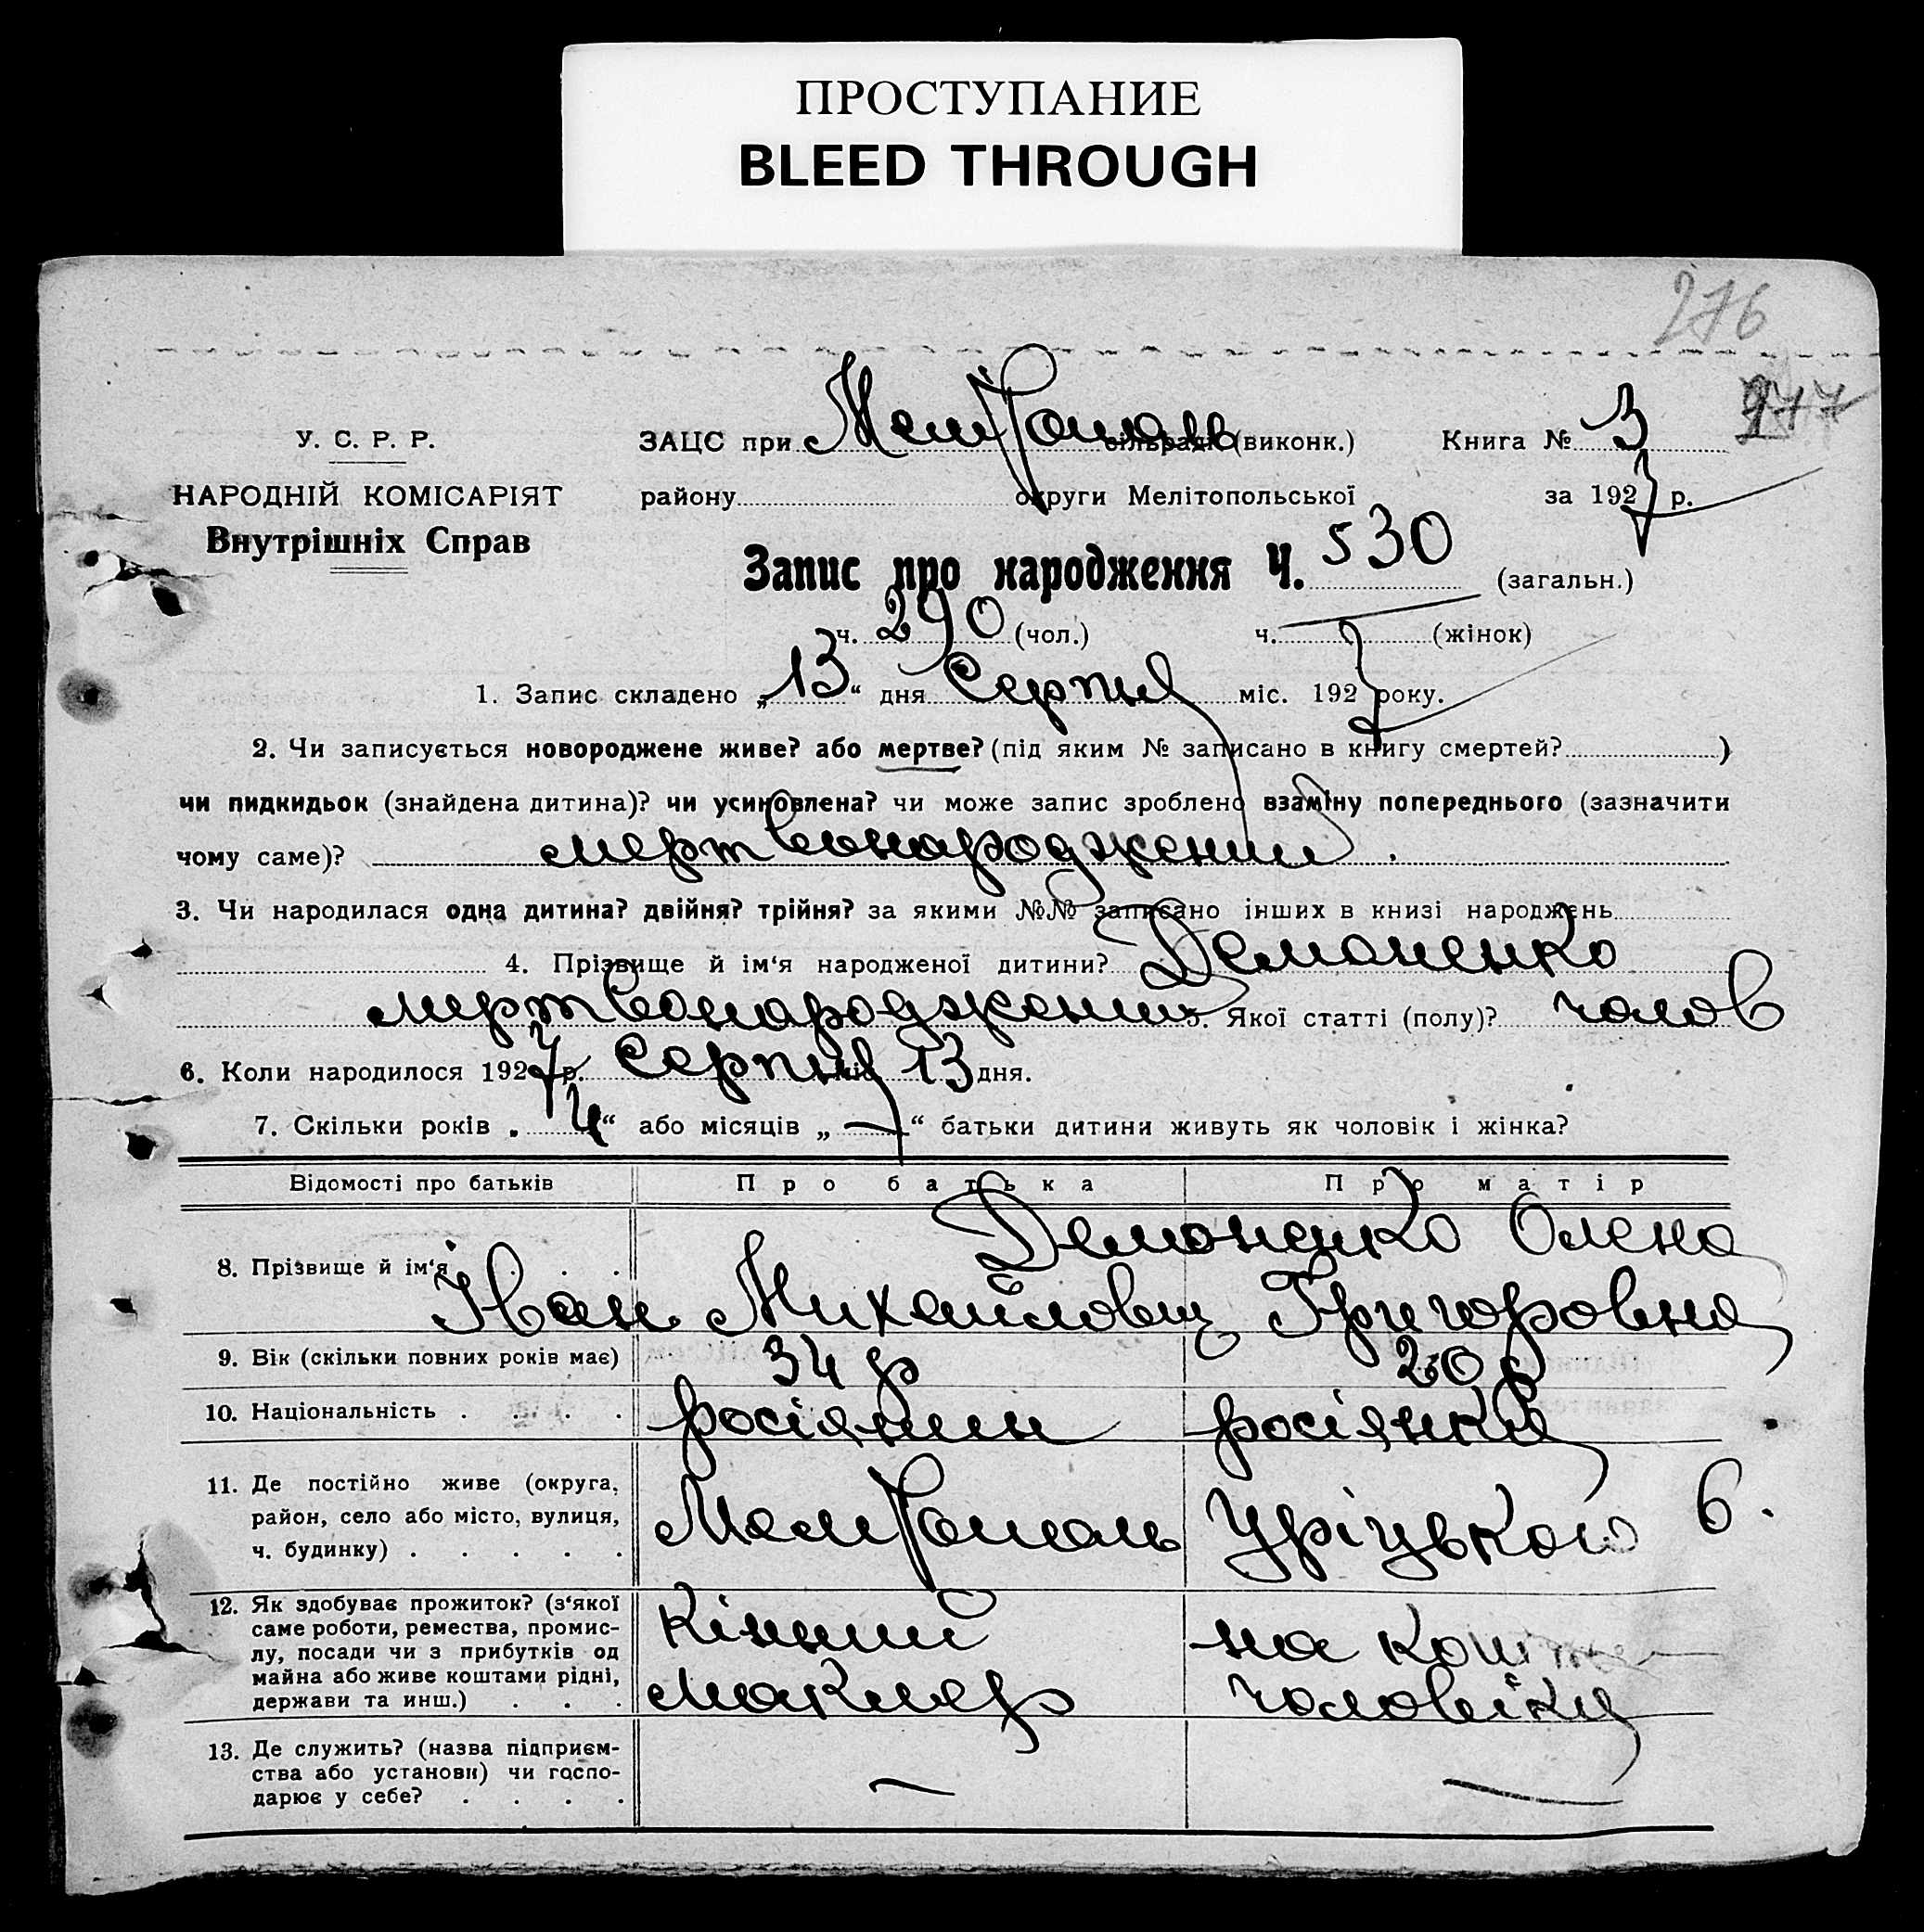 ПРОСТУПАНИЕ
BLEED THROUGH
276
277
У. С. Р. Р.
ЗАЦС при Мелітополь сільраді (виконк.) Книга № 3
НАРОДНІЙ КОМІСАРІЯТ
району округи Мелітопольської за 1927 р.
Внутрішніх Справ
Запис про народження Ч. 530 (загальн.)
ч. 290 (чол.) ч. (жінок)
1. Запис складено „13“ дня Серпня міс. 1927 року.
2. Чи записується новороджене живе? або мертве? (під яким № записано в книгу смертей? )
чи пидкидьок (знайдена дитина)? чи усиновлена? чи може запис зроблено взаміну попереднього (зазначити
чому саме)? мертвонароджений.
3. Чи народилася одна дитина? двійня? трійня? за якими №№ записано інших в книзі народжень
4. Прізвище й ім‘я народженої дитини? Демоненко
мертвонароджений 5. Якої статті (полу)? чолов
6. Коли народилося 1927 р. Серпня міс. 13 дня.
7. Скільки років „ 4 “ або місяців „ — “ батьки дитини живуть як чоловік і жінка?
Відомості про батьків Про батька Про матір
Демоненко Олена
8. Прізвище й ім‘я . . . .
Іван Михайлович Григоровна
9. Вік (скільки повних років має) 34 р 20 р
10. Національність . . . . росіянин росіянка
11. Де постійно живе (округа,
район, село або місто, вулиця,
ч. будинку) . . . . . Мелітополь Уріцького 6.
12. Як здобуває прожиток? (з‘якої
саме роботи, ремества, промис-
лу, посади чи з прибутків од
майна або живе коштами рідні,
держави та инш.) . . .
кінний на кошти
маклер чоловіка
13. Де служить? (назва підприєм-
ства або установи) чи госпо-
дарює у себе? . . . . — —